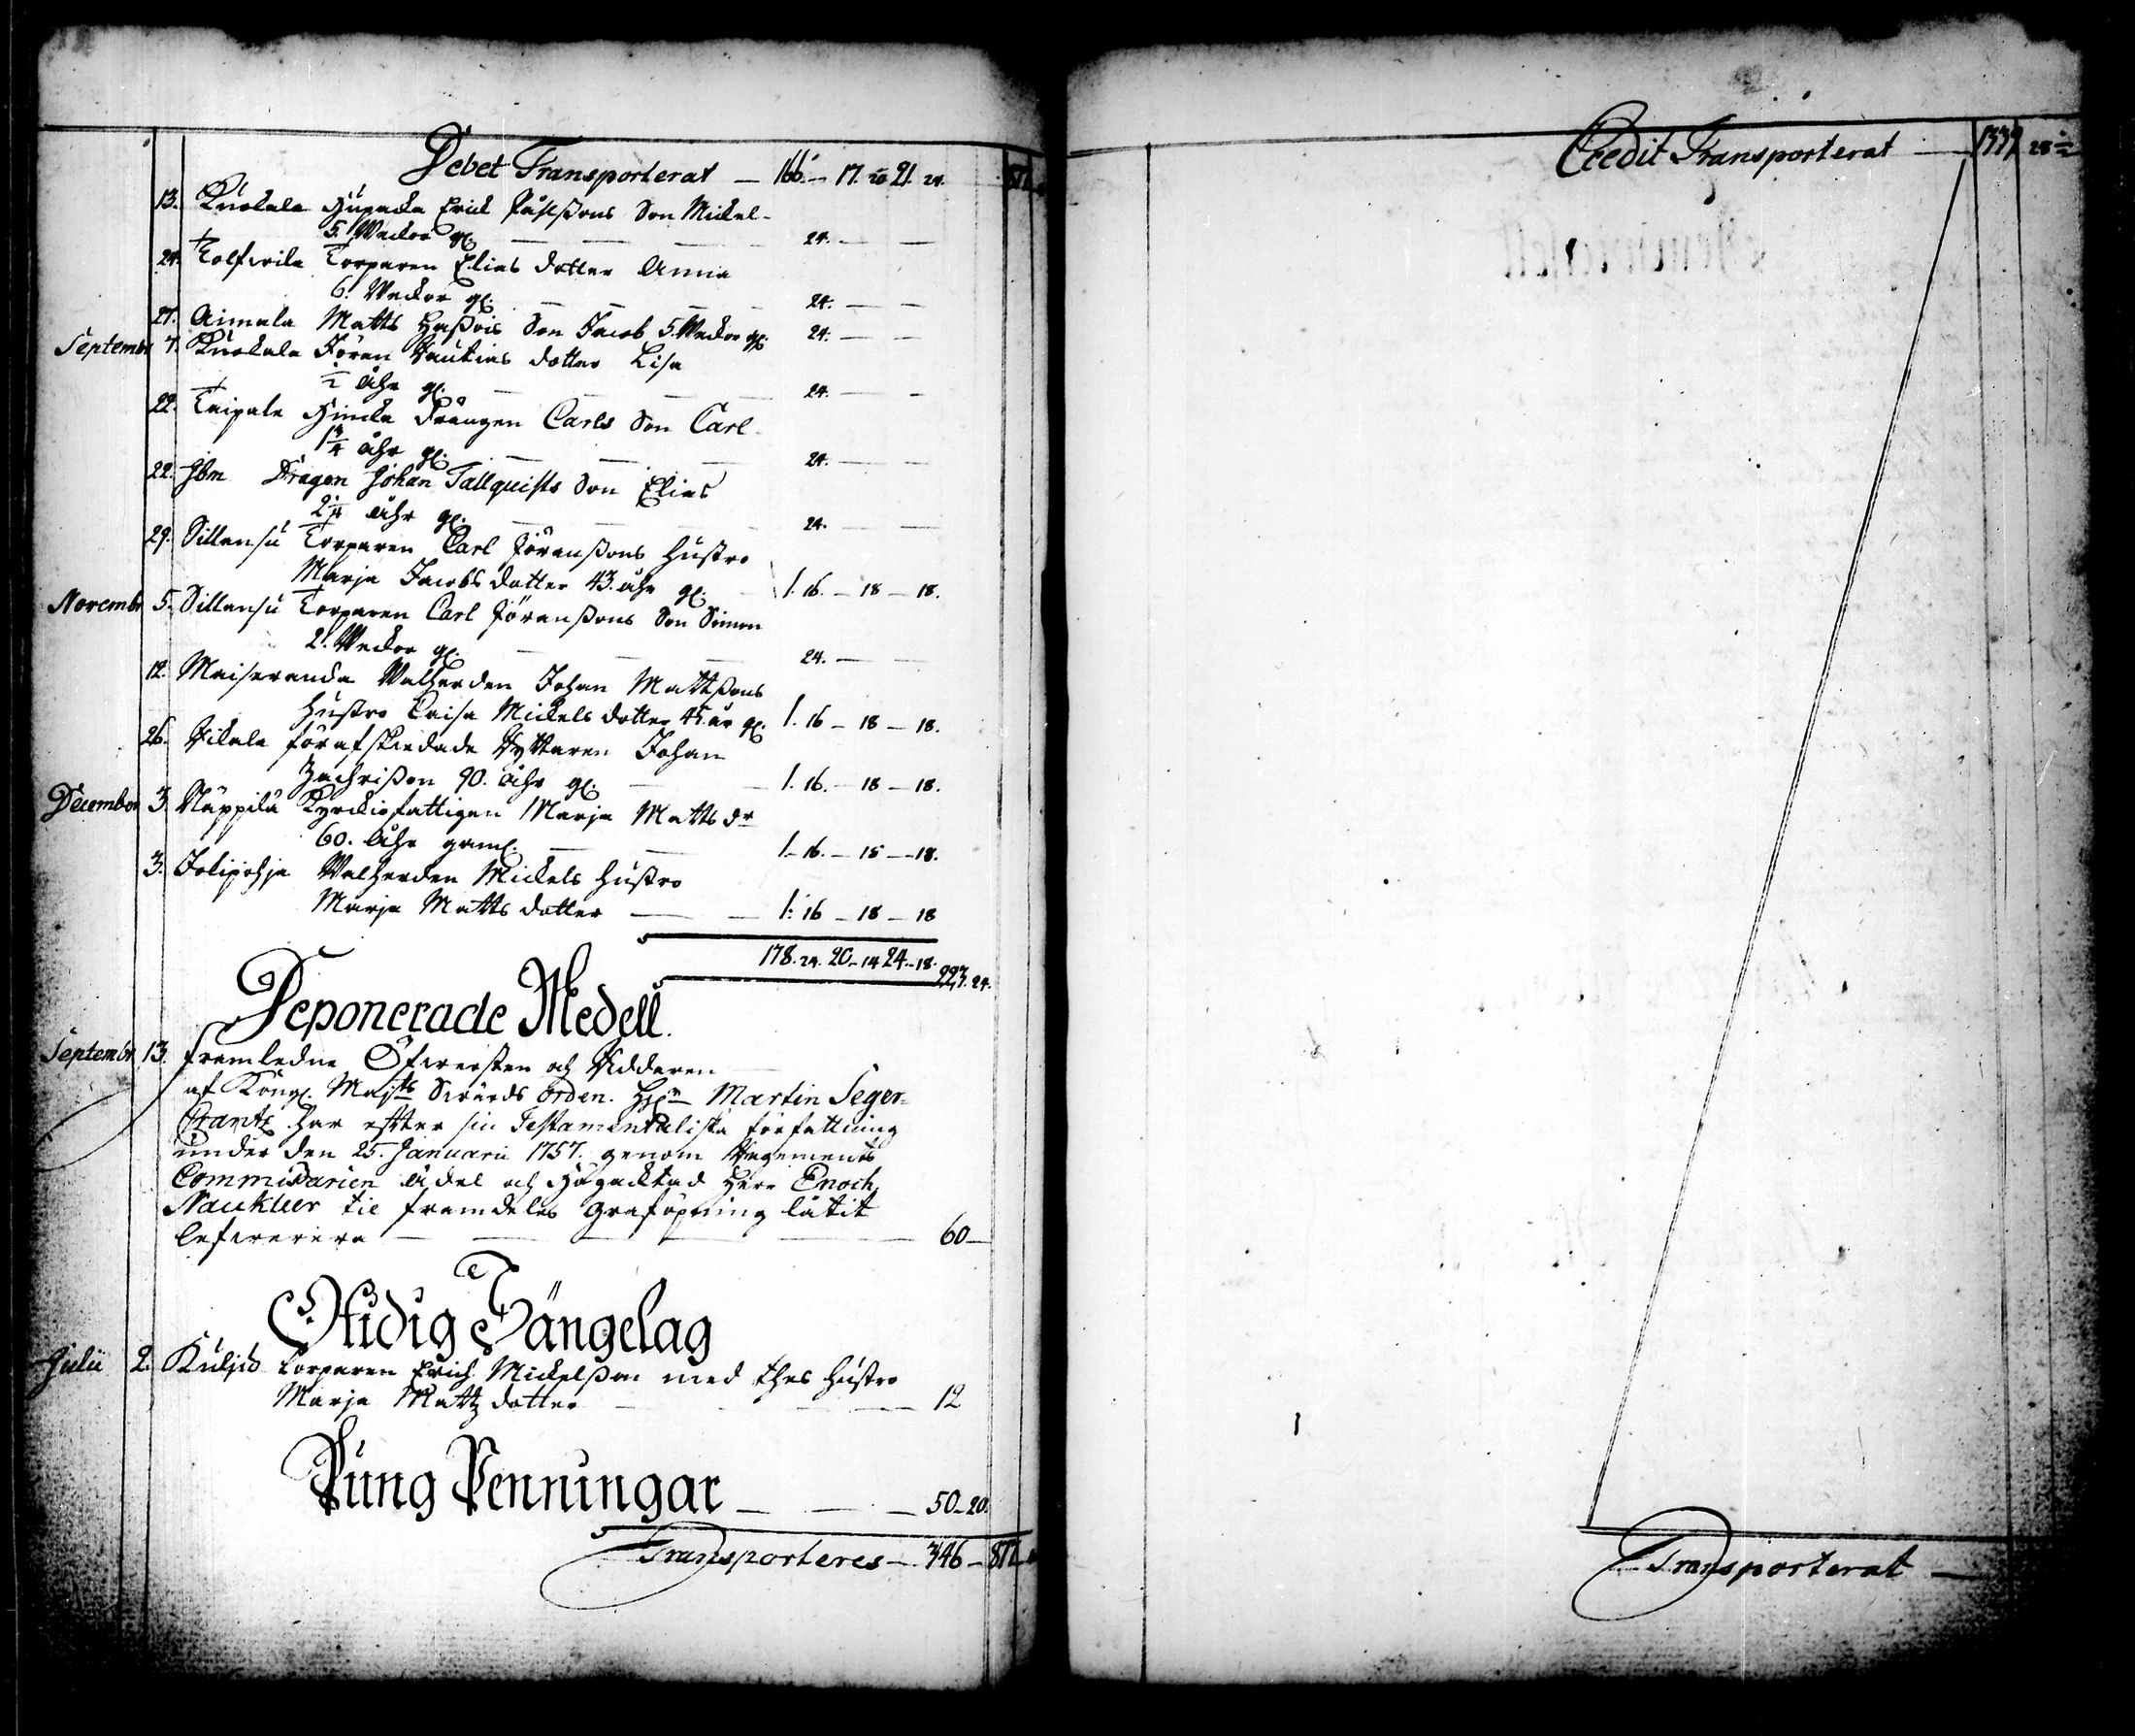 Debet Transporterat — 166. — 17. 20 21. 24.
13. Kuokala Hupacka Erick Påhlßons Son Mickel
5. Weckor gl. — — — 24. — —
24. Torparen Elias dotter Anna
6. Weckor gl. — — — 24. — —
27. Aimala Matts Son Jacob 5. Weckor gl. 24. — —
Septembr 7. Kuokala Jören dotter Lisa
½ åhr gl. — — — 24. — —
22. Taipale Himcka Drängen Carls Son Carl
1¾ åhr gl. — — — 24. — —
22. Ibm Dragon Johan Tallquists Son Elias
2¼ åhr gl. — — — 24. — —
29. Sillansu Torparen Carl Jöranßons Hustro
Marja Jacobs dotter 43. åhr gl. 1. 16. — 18 — 18.
Novembr 5. Sillansu Torparen Carl Jöranßons Son Simon
2. Weckor gl. — — — 24. — —
12. Maiseranda Walherden Johan Mattßons
Hustro Caisa Mickels dotter 45. år gl. 1. 16 — 18 — 18.
26. förafskiedade Ryttaren Johan
Zachrißon 90. åhr gl. — 1. 16. — 18 — 18.
December 3. Näppilä Kyrckiofattigen Marja Matts dr
60. åhr gaml. — — 1. 16. — 18 — 18.
3. Jolipohja Walherden Mickels Hustro
Marja Matts dotter — — 1. 16 — 18 — 18
178. 24. 20 — 14 24. — 18.
223. 24.
Deponerade Medell.
Septembr 13. framledne Öfwersten och Ridderen
af Kongl. Majts Swärds orden. Martin Seger=
Crantz har efter sin Testamentaliska författning
under den 25. Januarii 1757. genom Regements
Commissarien ädel och Högacktad Herr Enoch
Naukleer til framdeles Graföpning låtit
lefwerera — — — — 60 —
Ledig Sängelag
Julii 2. Kuljo Torparen Erich Mickelßon med thes Hustro
Marja Mattz dotter — — 12
Pung Penningar — — — 50. 20.
Transporteres — 346 — 811
Credit Transporterat — 1339 28
Transporterat —